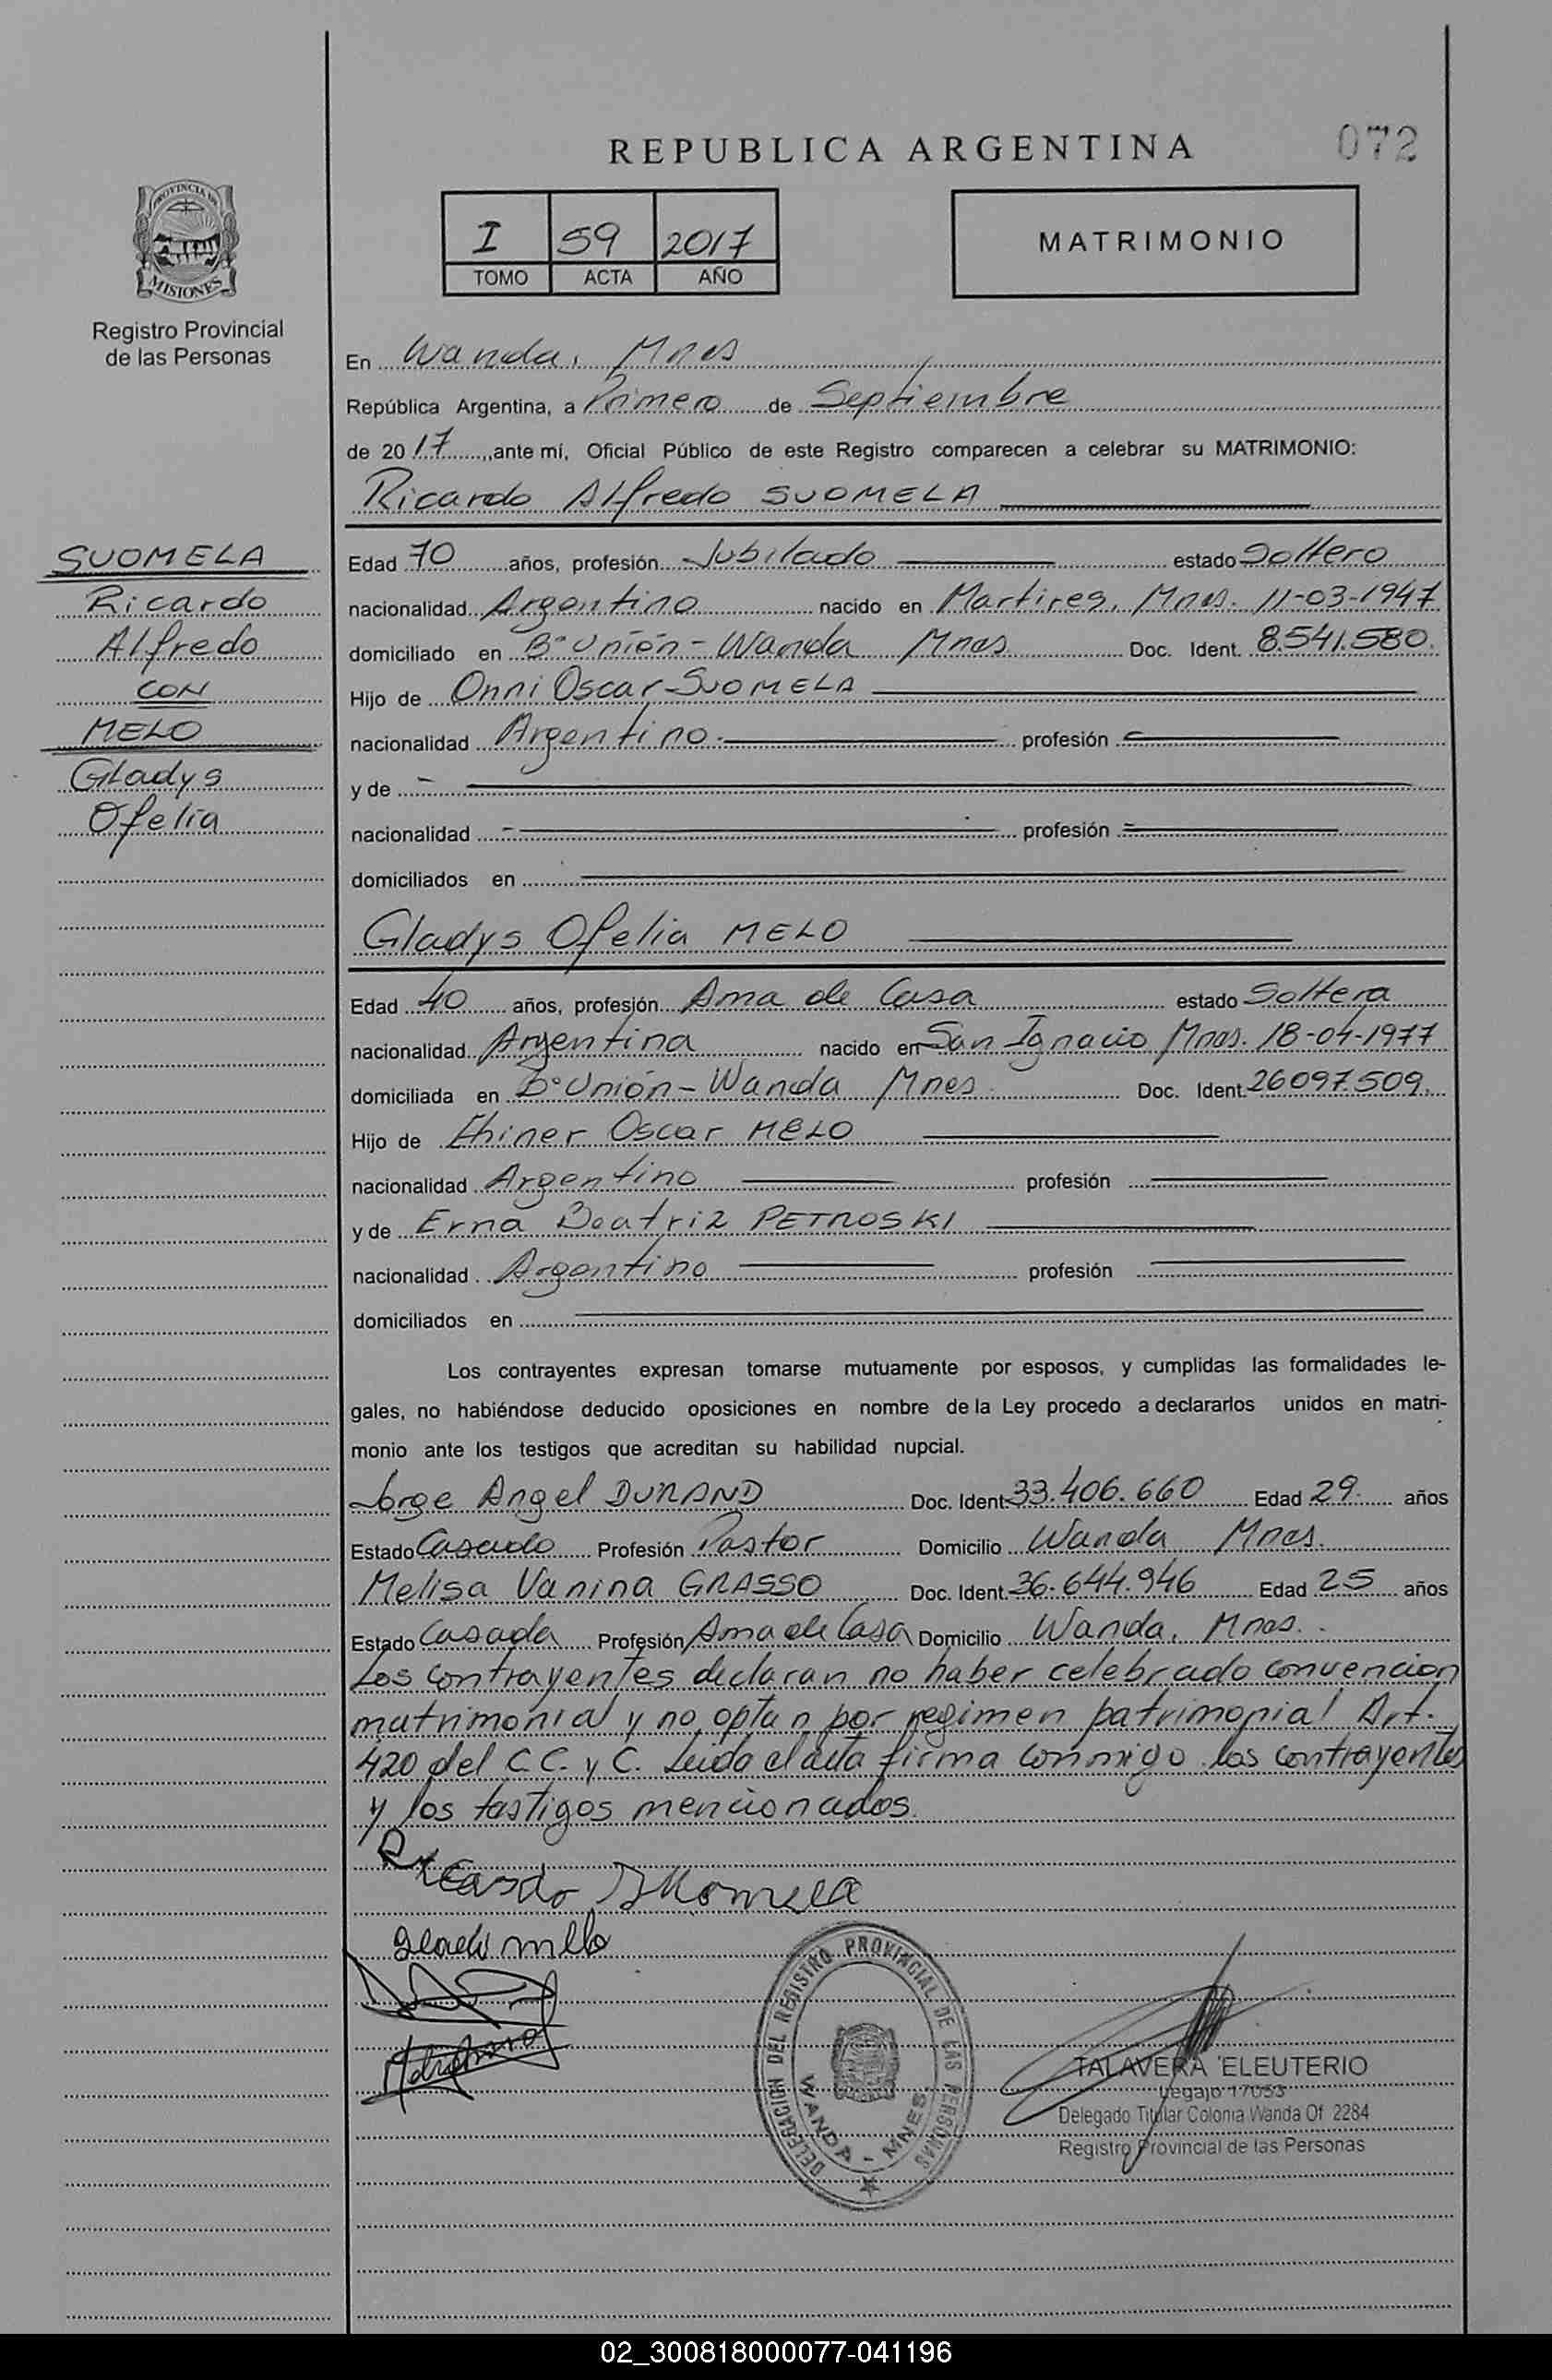 REPUBLICA ARGENTINA
072
PROVINCIA DE
MISIONES
Registro Provincial
de las Personas
I 59 2017
TOMO ACTA AÑO
MATRIMONIO
En Wanda, Mnes
República Argentina, a Primero de Septiembre
de 2017, ante mí, Oficial Público de este Registro comparecen a celebrar su MATRIMONIO:
Ricardo Alfredo SUOMELA
SUOMELA
Ricardo
Alfredo
CON
MELO
Gladys
Ofelia
Edad 70 años, profesión Jubilado estado Soltero
nacionalidad Argentino nacido en Martires, Mnes. 11-03-1947
domiciliado en Bº Unión - Wanda Mnes. Doc. Ident. 8.541.580.
Hijo de Onni Oscar SUOMELA
nacionalidad Argentino. profesión
y de -
nacionalidad - profesión -
domiciliados en
Gladys Ofelia MELO
Edad 40 años, profesión Ama de Casa estado Soltera
nacionalidad Argentina nacido en San Ignacio Mnes. 18-04-1977
domiciliada en Bº Unión - Wanda Mnes. Doc. Ident. 26097.509.
Hijo de Ehiner Oscar MELO
nacionalidad Argentino profesión
y de Erna Beatriz PETROSKI
nacionalidad Argentino profesión
domiciliados en
Los contrayentes expresan tomarse mutuamente por esposos, y cumplidas las formalidades le-
gales, no habiéndose deducido oposiciones en nombre de la Ley procedo a declararlos unidos en matri-
monio ante los testigos que acreditan su habilidad nupcial.
Jorge Angel DURAND Doc. Ident. 33.406.660 Edad 29. años
Estado Casado Profesión Pastor Domicilio Wanda Mnes.
Melisa Vanina GRASSO Doc. Ident. 36.644.946 Edad 25 años
Estado Casada Profesión Ama de Casa Domicilio Wanda, Mnes.
Los contrayentes declaran no haber celebrado convencion
matrimonial y no optan por regimen patrimonial Art.
420 del C.C. y C. Leida el acta firma conmigo los contrayentes
y los testigos mencionados.
Ricardo
DELEGACION DEL REGISTRO PROVINCIAL DE LAS PERSONAS
WANDA - MNES.
TALAVERA ELEUTERIO
Legajo 17053
Delegado Titular Colonia Wanda Of 2284
Registro Provincial de las Personas
02_300818000077-041196